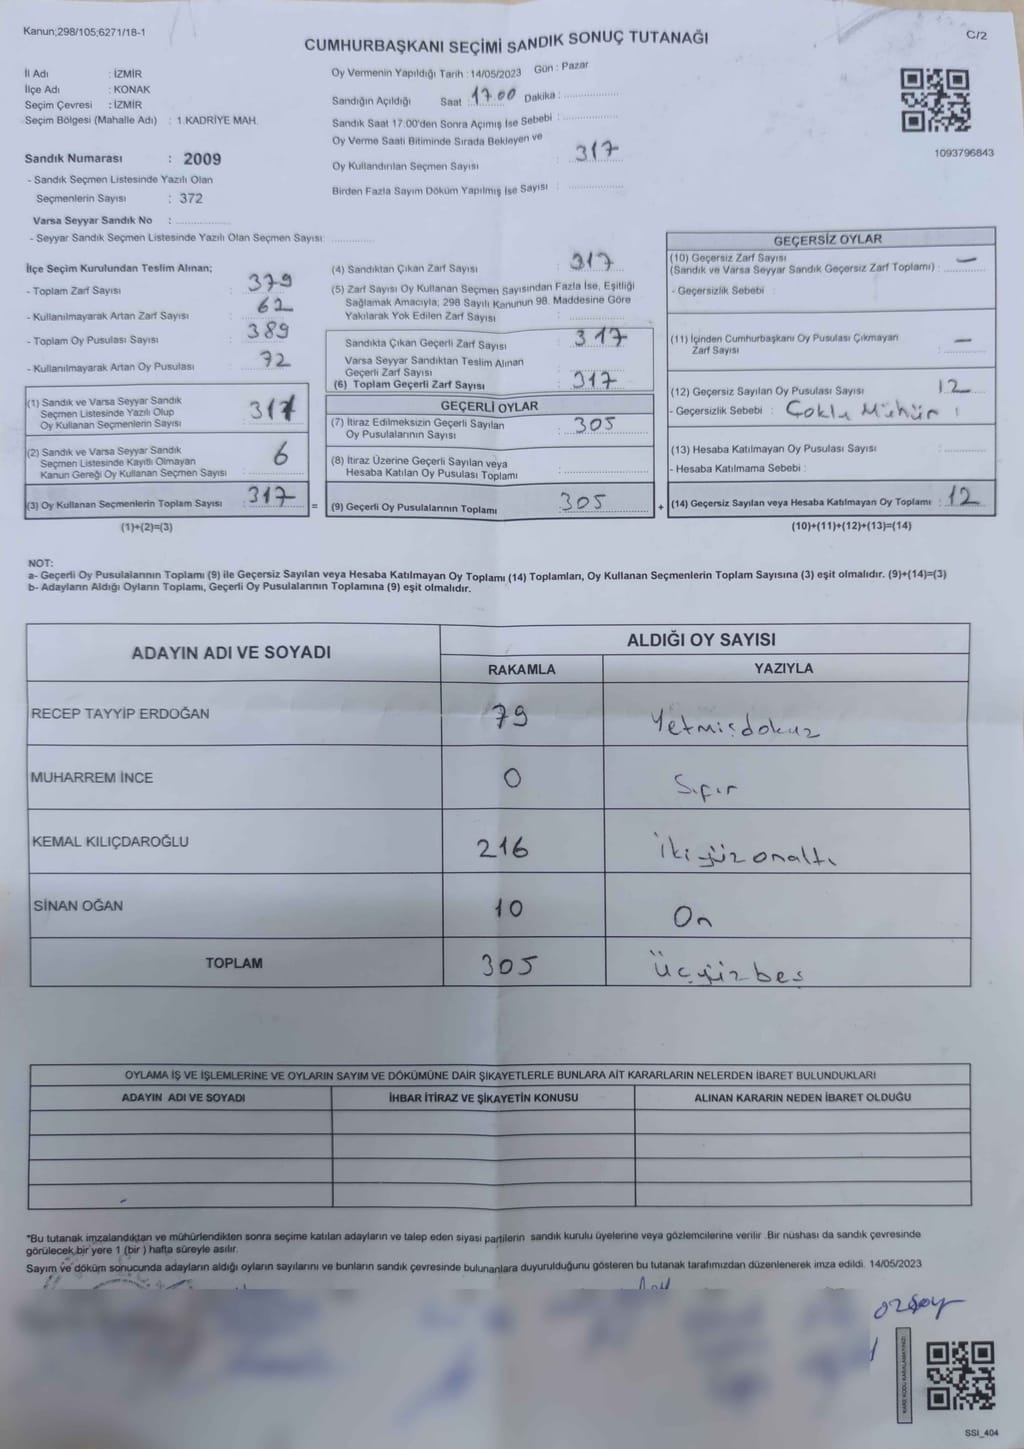 Kanun;298/105;6271/18-1
C/2
CUMHURBAŞKANI SEÇİMİ SANDIK SONUÇ TUTANAĞI
İl Adı : İZMİR
İlçe Adı : KONAK
Seçim Çevresi : İZMİR
Seçim Bölgesi (Mahalle Adı) : 1.KADRİYE MAH.
Sandık Numarası : 2009
- Sandık Seçmen Listesinde Yazılı Olan
Seçmenlerin Sayısı : 372
Varsa Seyyar Sandık No :
- Seyyar Sandık Seçmen Listesinde Yazılı Olan Seçmen Sayısı:
Oy Vermenin Yapıldığı Tarih : 14/05/2023 Gün : Pazar
Sandığın Açıldığı Saat : 17.00 Dakika :
Sandık Saat 17:00'den Sonra Açılmış İse Sebebi :
Oy Verme Saati Bitiminde Sırada Bekleyen ve
Oy Kullandırılan Seçmen Sayısı : 317
Birden Fazla Sayım Döküm Yapılmış İse Sayısı :
1093796843
İlçe Seçim Kurulundan Teslim Alınan;
- Toplam Zarf Sayısı : 379
- Kullanılmayarak Artan Zarf Sayısı : 62
- Toplam Oy Pusulası Sayısı : 389
- Kullanılmayarak Artan Oy Pusulası : 72
(1) Sandık ve Varsa Seyyar Sandık
Seçmen Listesinde Yazılı Olup
Oy Kullanan Seçmenlerin Sayısı : 317
(2) Sandık ve Varsa Seyyar Sandık
Seçmen Listesinde Kayıtlı Olmayan
Kanun Gereği Oy Kullanan Seçmen Sayısı : 6
(3) Oy Kullanan Seçmenlerin Toplam Sayısı : 317
(1)+(2)=(3)
(4) Sandıktan Çıkan Zarf Sayısı : 317
(5) Zarf Sayısı Oy Kullanan Seçmen Sayısından Fazla İse, Eşitliği
Sağlamak Amacıyla; 298 Sayılı Kanunun 98. Maddesine Göre
Yakılarak Yok Edilen Zarf Sayısı :
Sandıkta Çıkan Geçerli Zarf Sayısı : 317
Varsa Seyyar Sandıktan Teslim Alınan
Geçerli Zarf Sayısı :
(6) Toplam Geçerli Zarf Sayısı : 317
GEÇERLİ OYLAR
(7) İtiraz Edilmeksizin Geçerli Sayılan
Oy Pusulalarının Sayısı : 305
(8) İtiraz Üzerine Geçerli Sayılan veya
Hesaba Katılan Oy Pusulası Toplamı :
= (9) Geçerli Oy Pusulalarının Toplamı : 305
GEÇERSİZ OYLAR
(10) Geçersiz Zarf Sayısı
(Sandık ve Varsa Seyyar Sandık Geçersiz Zarf Toplamı) : —
- Geçersizlik Sebebi :
(11) İçinden Cumhurbaşkanı Oy Pusulası Çıkmayan
Zarf Sayısı : —
(12) Geçersiz Sayılan Oy Pusulası Sayısı : 12
- Geçersizlik Sebebi : Çoklu Mühür
(13) Hesaba Katılmayan Oy Pusulası Sayısı :
- Hesaba Katılmama Sebebi :
+ (14) Geçersiz Sayılan veya Hesaba Katılmayan Oy Toplamı : 12
(10)+(11)+(12)+(13)=(14)
NOT:
a- Geçerli Oy Pusulalarının Toplamı (9) ile Geçersiz Sayılan veya Hesaba Katılmayan Oy Toplamı (14) Toplamları, Oy Kullanan Seçmenlerin Toplam Sayısına (3) eşit olmalıdır. (9)+(14)=(3)
b- Adayların Aldığı Oyların Toplamı, Geçerli Oy Pusulalarının Toplamına (9) eşit olmalıdır.
ADAYIN ADI VE SOYADI
ALDIĞI OY SAYISI
RAKAMLA YAZIYLA
RECEP TAYYİP ERDOĞAN 79 Yetmişdokuz
MUHARREM İNCE 0 Sıfır
KEMAL KILIÇDAROĞLU 216 ikiyüzonaltı
SİNAN OĞAN 10 On
TOPLAM 305 Üçyüzbeş
OYLAMA İŞ VE İŞLEMLERİNE VE OYLARIN SAYIM VE DÖKÜMÜNE DAİR ŞİKAYETLERLE BUNLARA AİT KARARLARIN NELERDEN İBARET BULUNDUKLARI
ADAYIN ADI VE SOYADI İHBAR İTİRAZ VE ŞİKAYETİN KONUSU ALINAN KARARIN NEDEN İBARET OLDUĞU
*Bu tutanak imzalandıktan ve mühürlendikten sonra seçime katılan adayların ve talep eden siyasi partilerin sandık kurulu üyelerine veya gözlemcilerine verilir. Bir nüshası da sandık çevresinde
görülecek bir yere 1 (bir) hafta süreyle asılır.
Sayım ve döküm sonucunda adayların aldığı oyların sayılarını ve bunların sandık çevresinde bulunanlara duyurulduğunu gösteren bu tutanak tarafımızdan düzenlenerek imza edildi. 14/05/2023
KARE KODU KARALAMAYINIZ!
SSI_404